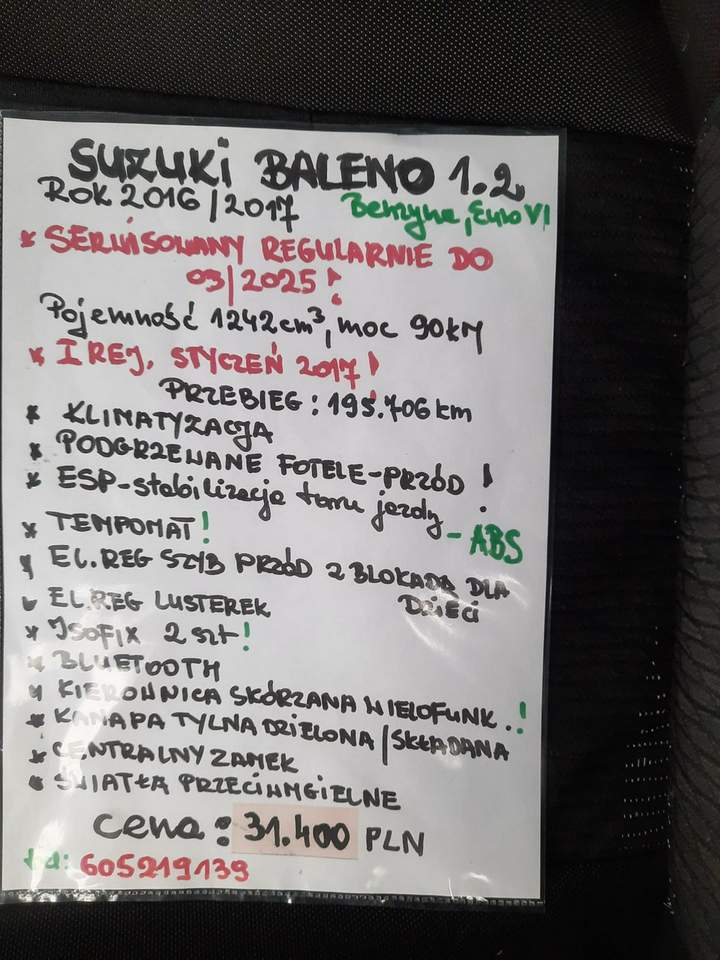 SUZUKI BALENO 1.2
ROK 2016/2017 Benzyna, Euro VI
* SERWISOWANY REGULARNIE DO
03/2025!
Pojemność 1242cm³, moc 90KM
* I REJ. STYCZEŃ 2017!
PRZEBIEG: 195.706 km
* KLIMATYZACJA
* PODGRZEWANE FOTELE-PRZÓD!
* ESP-stabilizacja toru jazdy - ABS
* TEMPOMAT!
* EL.REG SZYB PRZÓD Z BLOKADĄ DLA
DZIECI
* EL.REG LUSTEREK
* ISOFIX 2 szt!
* BLUETOOTH
* KIEROWNICA SKÓRZANA WIELOFUNK.!
* KANAPA TYLNA DZIELONA/SKŁADANA
* CENTRALNY ZAMEK
* ŚWIATŁA PRZECIWMGIELNE
cena: 31.400 PLN
tel: 605219139